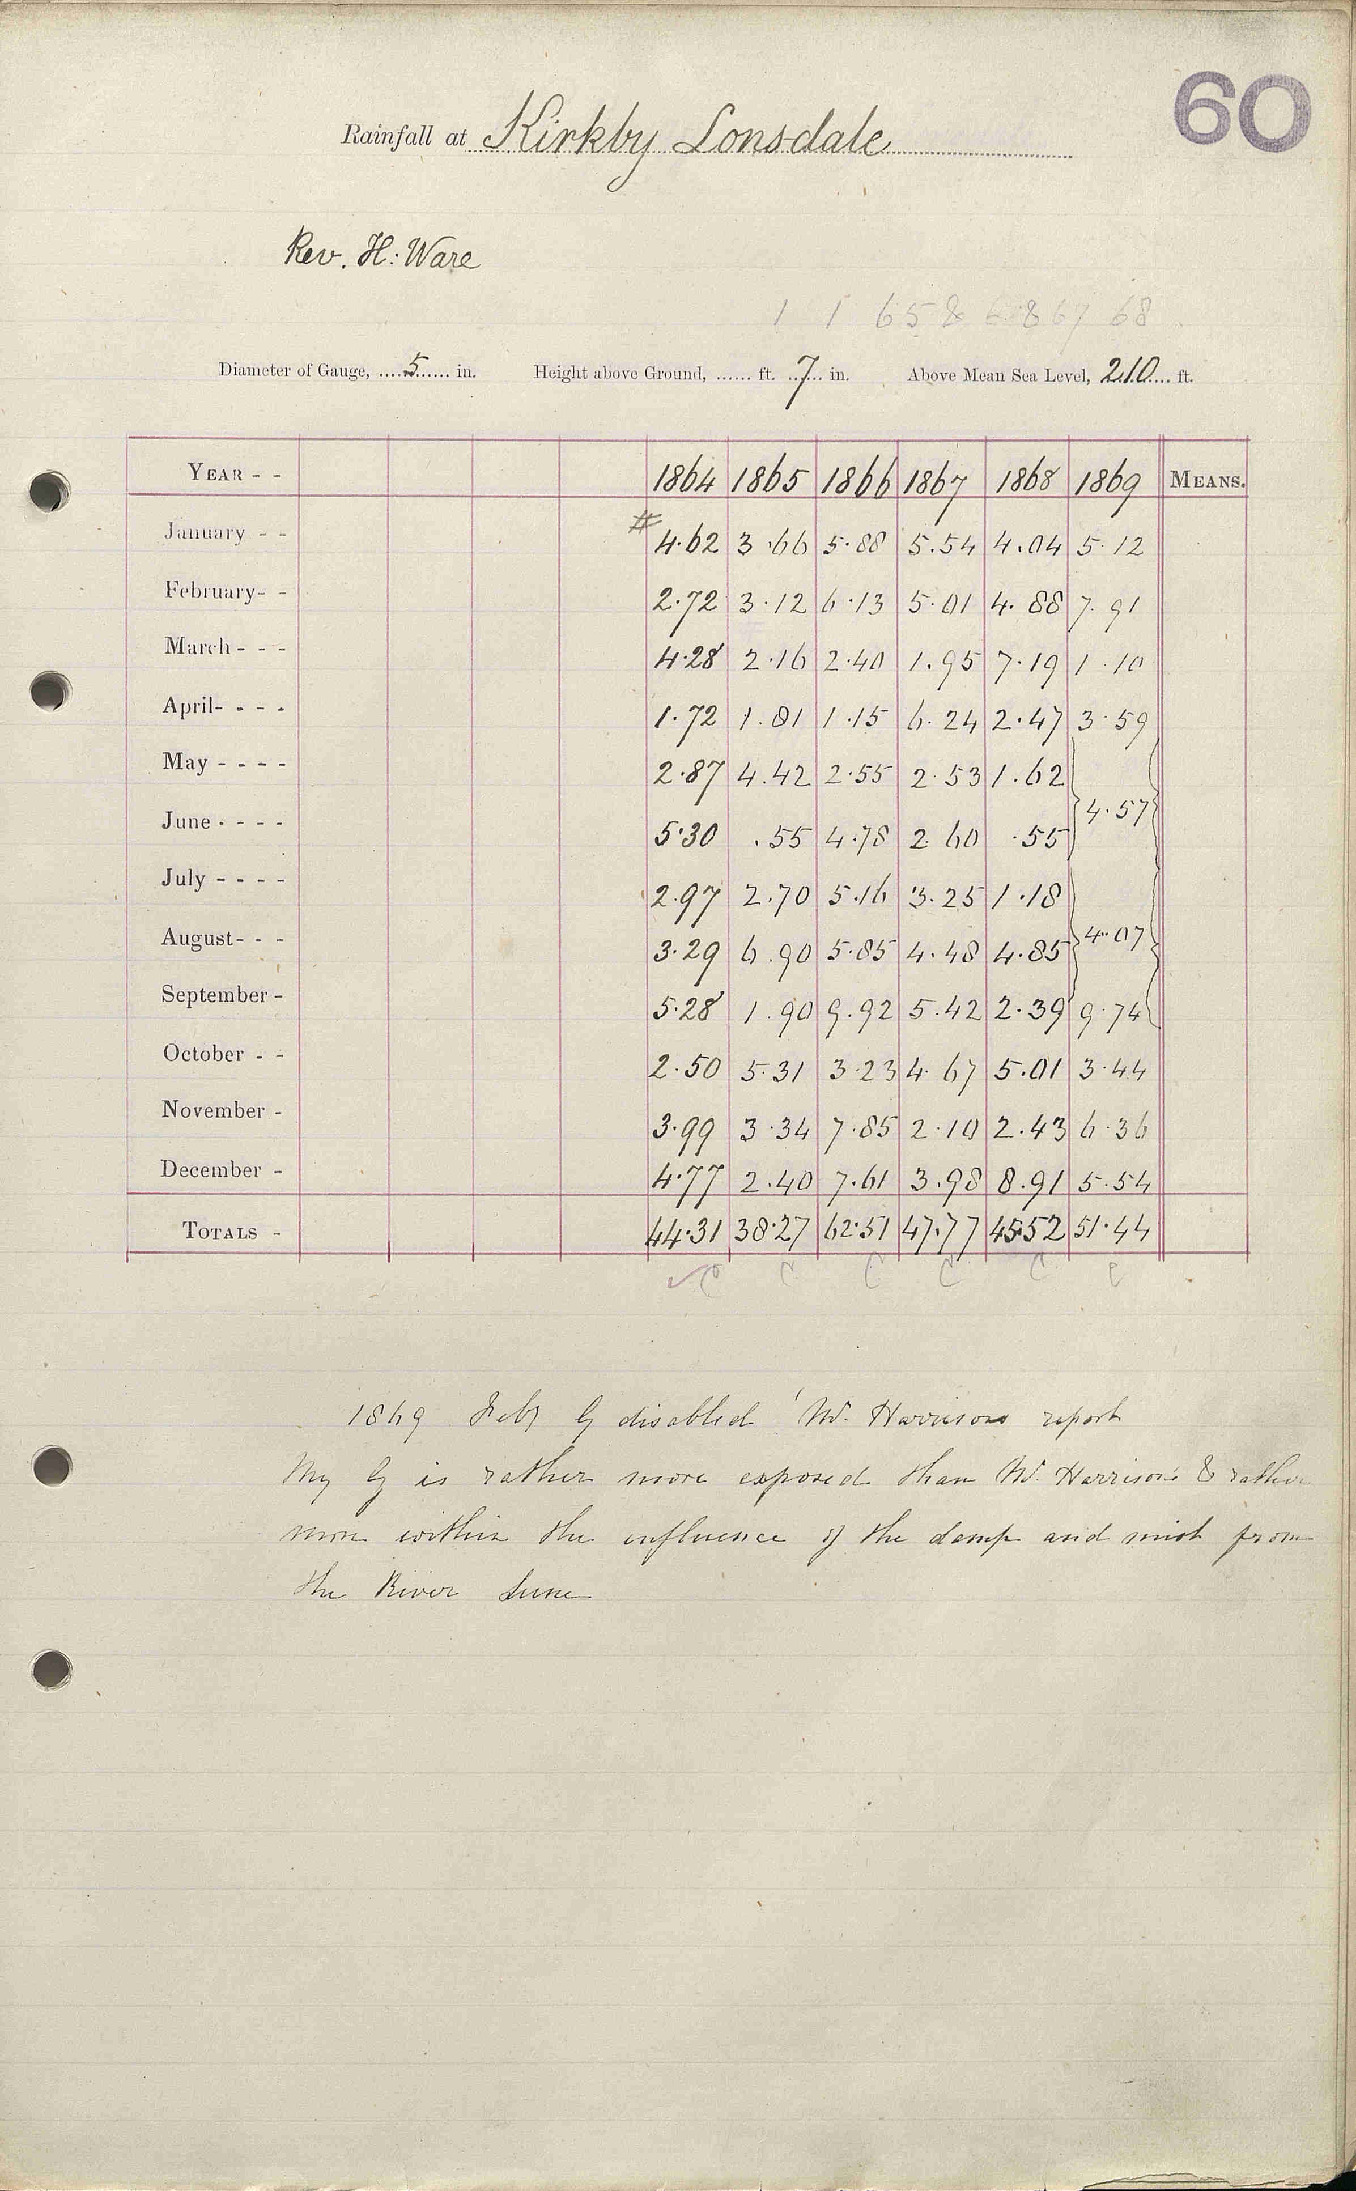 60
Rainfall at Kirkby Lonsdale
Rev. H. Ware
Diameter of Gauge, 5 in. Height above Ground, ft. 7 in. Above Mean Sea Level, 210 ft.
YEAR - - 1864 1865 1866 1867 1868 1869 MEANS.
January - - # 4.62 3.66 5.88 5.54 4.04 5.12
February- - 2.72 3.12 6.13 5.01 4.88 7.91
March - - - 4.28 2.16 2.40 1.95 7.19 1.10
April- - - - 1.72 1.81 1.15 6.24 2.47 3.59
May - - - - 2.87 4.42 2.55 2.53 1.62
4.57
June - - - - 5.30 .55 4.78 2.60 .55
July - - - - 2.97 2.70 5.16 3.25 1.18
August- - - 3.29 6.90 5.85 4.48 4.85 4.07
September - 5.28 1.90 9.92 5.42 2.39 9.74
October - - 2.50 5.31 3.23 4.67 5.01 3.44
November - 3.99 3.34 7.85 2.10 2.43 6.36
December - 4.77 2.40 7.61 3.98 8.91 5.54
TOTALS - 44.31 38.27 62.51 47.77 45.52 51.44
C C C C C C
1869 Feby G disabled Mr. Harrisons report
My G is rather more exposed than Mr. Harrison's & rather
more within the influence of the damp and mist from
the River Lune